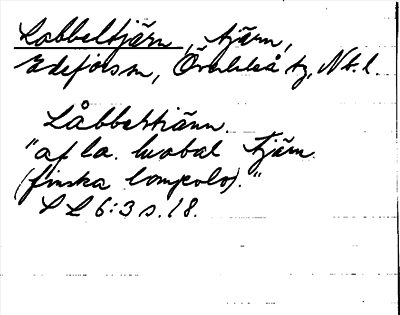 Labbeltjärn, tjärn,
Edefors sn, Överluleå tg, Nb. l.
Låbbeltiärn.
"af la. luobal tjärn
(finska lompolo)."
S L 6:3 s. 18.